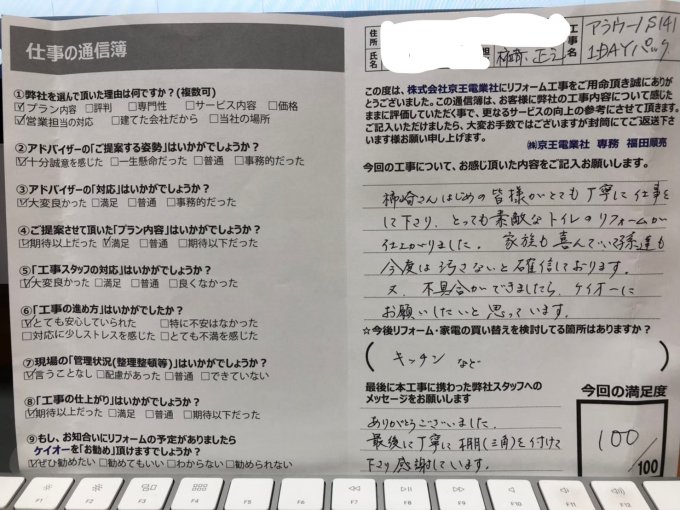 仕事の通信簿
①弊社を選んで頂いた理由は何ですか？(複数可)
☑プラン内容 □評判 □専門性 □サービス内容 □価格
☑営業担当の対応 □建てた会社だから □当社の場所
②アドバイザーの「ご提案する姿勢」はいかがでしょうか？
☑十分誠意を感じた □一生懸命だった □普通 □事務的だった
③アドバイザーの「対応」はいかがでしょうか？
☑大変良かった □満足 □普通 □事務的だった
④ご提案させて頂いた「プラン内容」はいかがでしょうか？
☑期待以上だった ☑満足 □普通 □期待以下だった
⑤「工事スタッフの対応」はいかがでしょうか？
☑大変良かった □満足 □普通 □良くなかった
⑥「工事の進め方」はいかがでしたか？
☑とても安心していられた □特に不安はなかった
□対応に少しストレスを感じた □とても不満を感じた
⑦現場の「管理状況(整理整頓等)」はいかがでしょうか？
☑言うことなし □配慮があった □普通 □できていない
⑧「工事の仕上がり」はいかがでしょうか？
☑期待以上だった □満足 □普通 □期待以下だった
⑨もし、お知合いにリフォームの予定がありましたら
ケイオーを「お勧め」頂けますでしょうか？
☑ぜひ勧めたい □勧めてもいい □わからない □勧められない
住所
氏名
工事名
アラウーノS141
1DAYパック
この度は、株式会社京王電業社にリフォーム工事をご用命頂き誠にありが
とうございました。この通信簿は、お客様に弊社の工事内容について感じた
ままに評価していただく事で、更なるサービスの向上の参考にさせて頂きます。
ご記入いただけましたら、大変お手数ではございますが封筒にてご返送下さ
います様お願い申し上げます。
㈱京王電業社 専務 福田順亮
今回の工事について、お感じ頂いた内容をご記入お願いします。
柿崎さんはじめの皆様がとても丁寧に仕事を
して下さり、とっても素敵なトイレのリフォームが
仕上がりました。家族も喜んでいて孫達も
今度は汚さないと確信しております。
又、不具合ができましたら、ケイオーに
お願いしたいと思っています。
☆今後リフォーム・家電の買い替えを検討してる箇所はありますか？
(キッチン など
最後に本工事に携わった弊社スタッフへの
メッセージをお願いします
ありがとうございました。
最後に丁寧に棚(三角)を付けて
下さり感謝しています。
今回の満足度
100/100
F1
F2
F3
F4
F5
F6
F7
F8
F9
F10
F11
F12